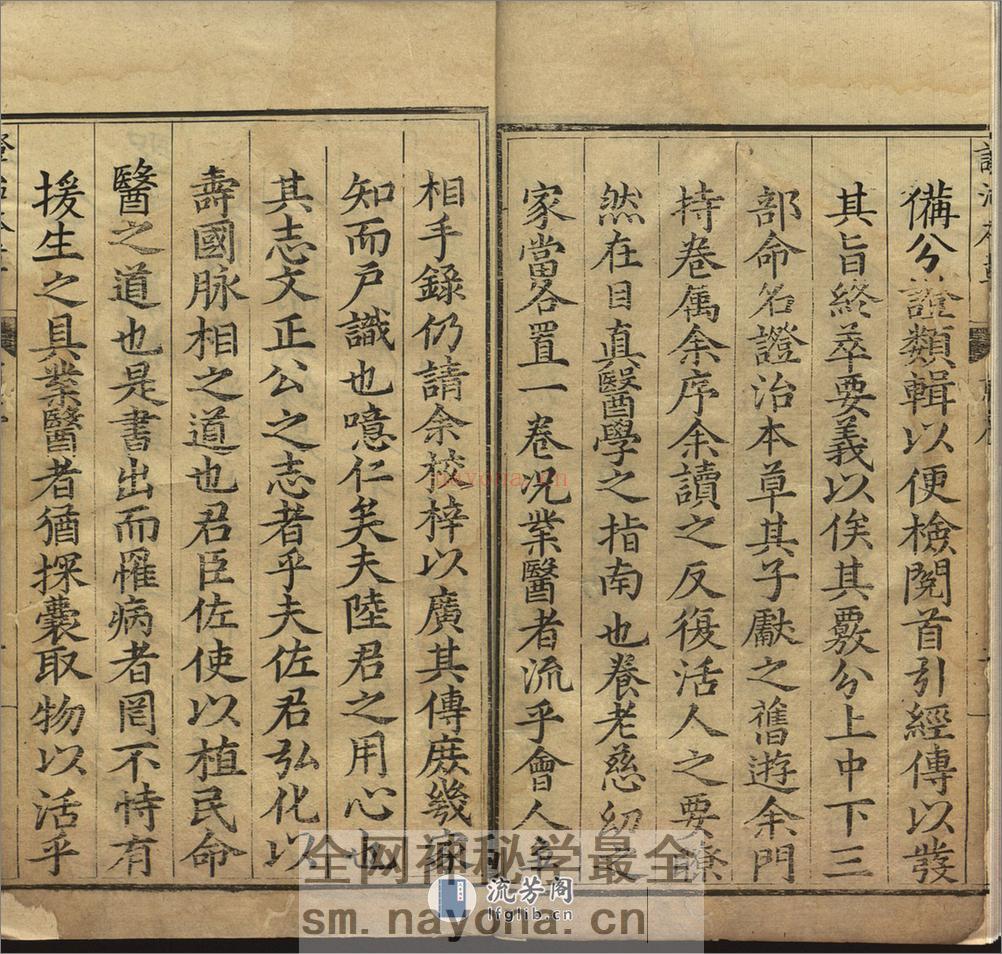 備分證類輯以便檢閱首引經傳以發
其旨終萃要義以俟其覈分上中下三
部命名證治本草其子獻之舊遊余門
持卷属余序余讀之反復活人之要瞭
然在目真醫學之指南也養老慈幼
家當各置一卷况業醫者流乎會人
相手錄仍請余校梓以廣其傳庶幾家
知而戶識也噫仁矣夫陸君之用心也
其志文正公之志者乎夫佐君弘化以
壽國脉相之道也君臣佐使以植民命
醫之道也是書出而罹病者罔不恃有
援生之具業醫者猶探囊取物以活乎
nayona.cn
全网神秘学最全
流芳阁
lfglib.cn
sm.nayona.cn